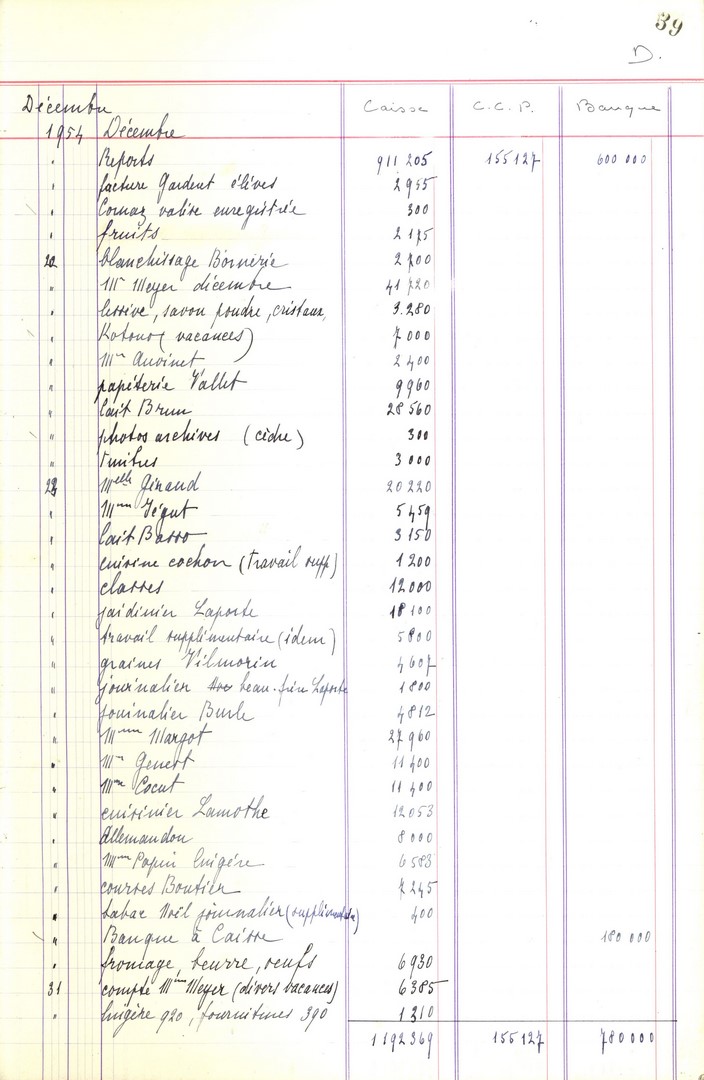 39
D.
Décembre Caisse C.C.P. Banque
1954 Décembre
" Reports 911 205 155127 600 000
" facture Gardent élèves 2955
" Cornaz valise enregistrée 300
" fruits 2175
20 blanchissage Bornerie 2700
" Mr Meyer décembre 41720
" lessive, savon poudre, cristaux, 3.280
" Kotono (vacances) 7000
" Mme 2400
" papéterie Vallet 9960
" lait Brun 28560
" photos archives (cèdre) 300
" timbres 3000
Melle Giraud 20220
" Mme Jégut 5459
" lait Basso 3150
" cuisine cochon (travail supp) 1200
" classes 12000
" jardinier Laporte 18100
" travail supplémentaire (idem) 5800
" graines Vilmorin 4607
" journalier beau-frère Laporte 1800
" journalier Burle 4812
" Mme Margot 27960
" Mme Genest 11400
" Mme Cocut 11400
" cuisinier Lamothe 12053
" Allemandou 8000
" Mme Papin lingère 6583
" courses Boutier 7245
" tabac Noël journalier 400
" Banque à Caisse 180 000
" fromage, beurre, oeufs 6930
31 compte Mme Meyer (divers vacances) 6385
" lingère 920, fournitures 390 1310
1192369 155127 780000